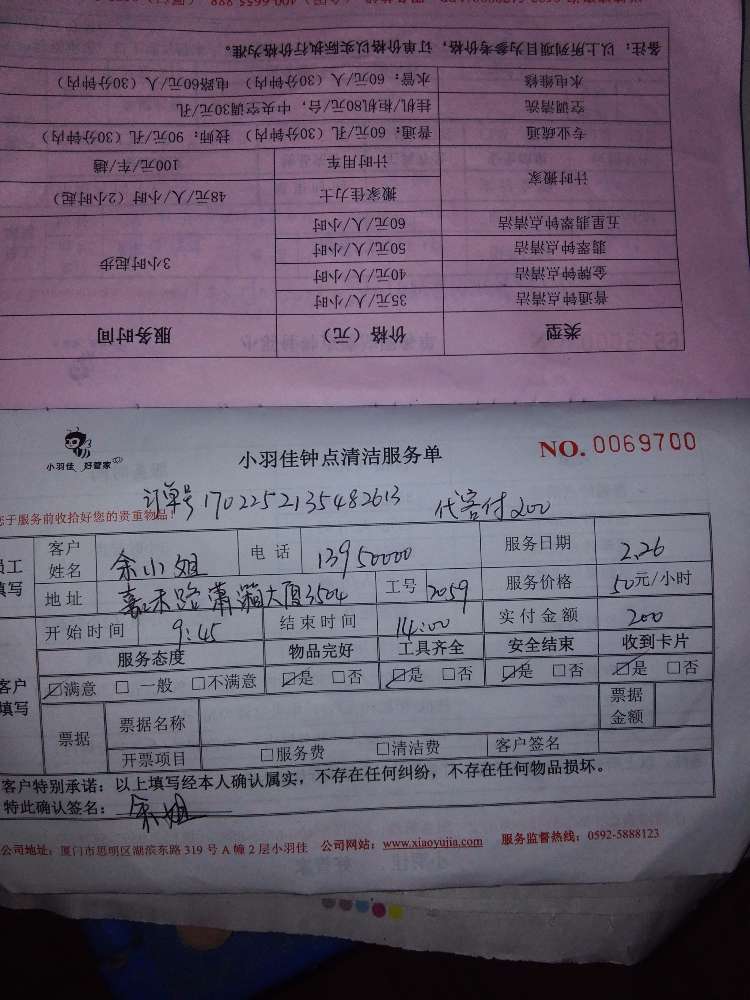 备注：以上所列项目为参考价格，订单价格以实际执行价格为准。
水电维修 水管：60元/人（30分钟内） 电路60元/人（30分钟内）
空调清洗 挂机/柜机80元/台，中央空调30元/孔
专业疏通 普通：60元/孔（30分钟内） 技师：90元/孔（30分钟内）
计时搬家 计时用车 100元/车/趟
搬家佳力士 48元/人/小时（2小时起）
五星翡翠钟点清洁 60元/人/小时
翡翠钟点清洁 50元/人/小时 3小时起步
金牌钟点清洁 40元/人/小时
普通钟点清洁 35元/人/小时
类型 价格（元） 服务时间
小羽佳 好管家
小羽佳钟点清洁服务单
NO. 0069700
订单号1702252135482613 代客付200
您于服务前收拾好您的贵重物品！
员工填写
客户姓名 余小姐 电话 13950000 服务日期 2.26
地址 嘉禾路潇湘大厦3504 工号 2059 服务价格 50元/小时
开始时间 9:45 结束时间 14:00 实付金额 200
客户填写
服务态度 物品完好 工具齐全 安全结束 收到卡片
☑满意 □一般 □不满意 ☑是 □否 ☑是 □否 ☑是 □否 ☑是 □否
票据 票据名称 票据金额
开票项目 □服务费 □清洁费 客户签名
客户特别承诺：以上填写经本人确认属实，不存在任何纠纷，不存在任何物品损坏。
特此确认签名：余小姐
公司地址：厦门市思明区湖滨东路319号A幢2层小羽佳 公司网站：www.xiaoyujia.com 服务监督热线：0592-5888123